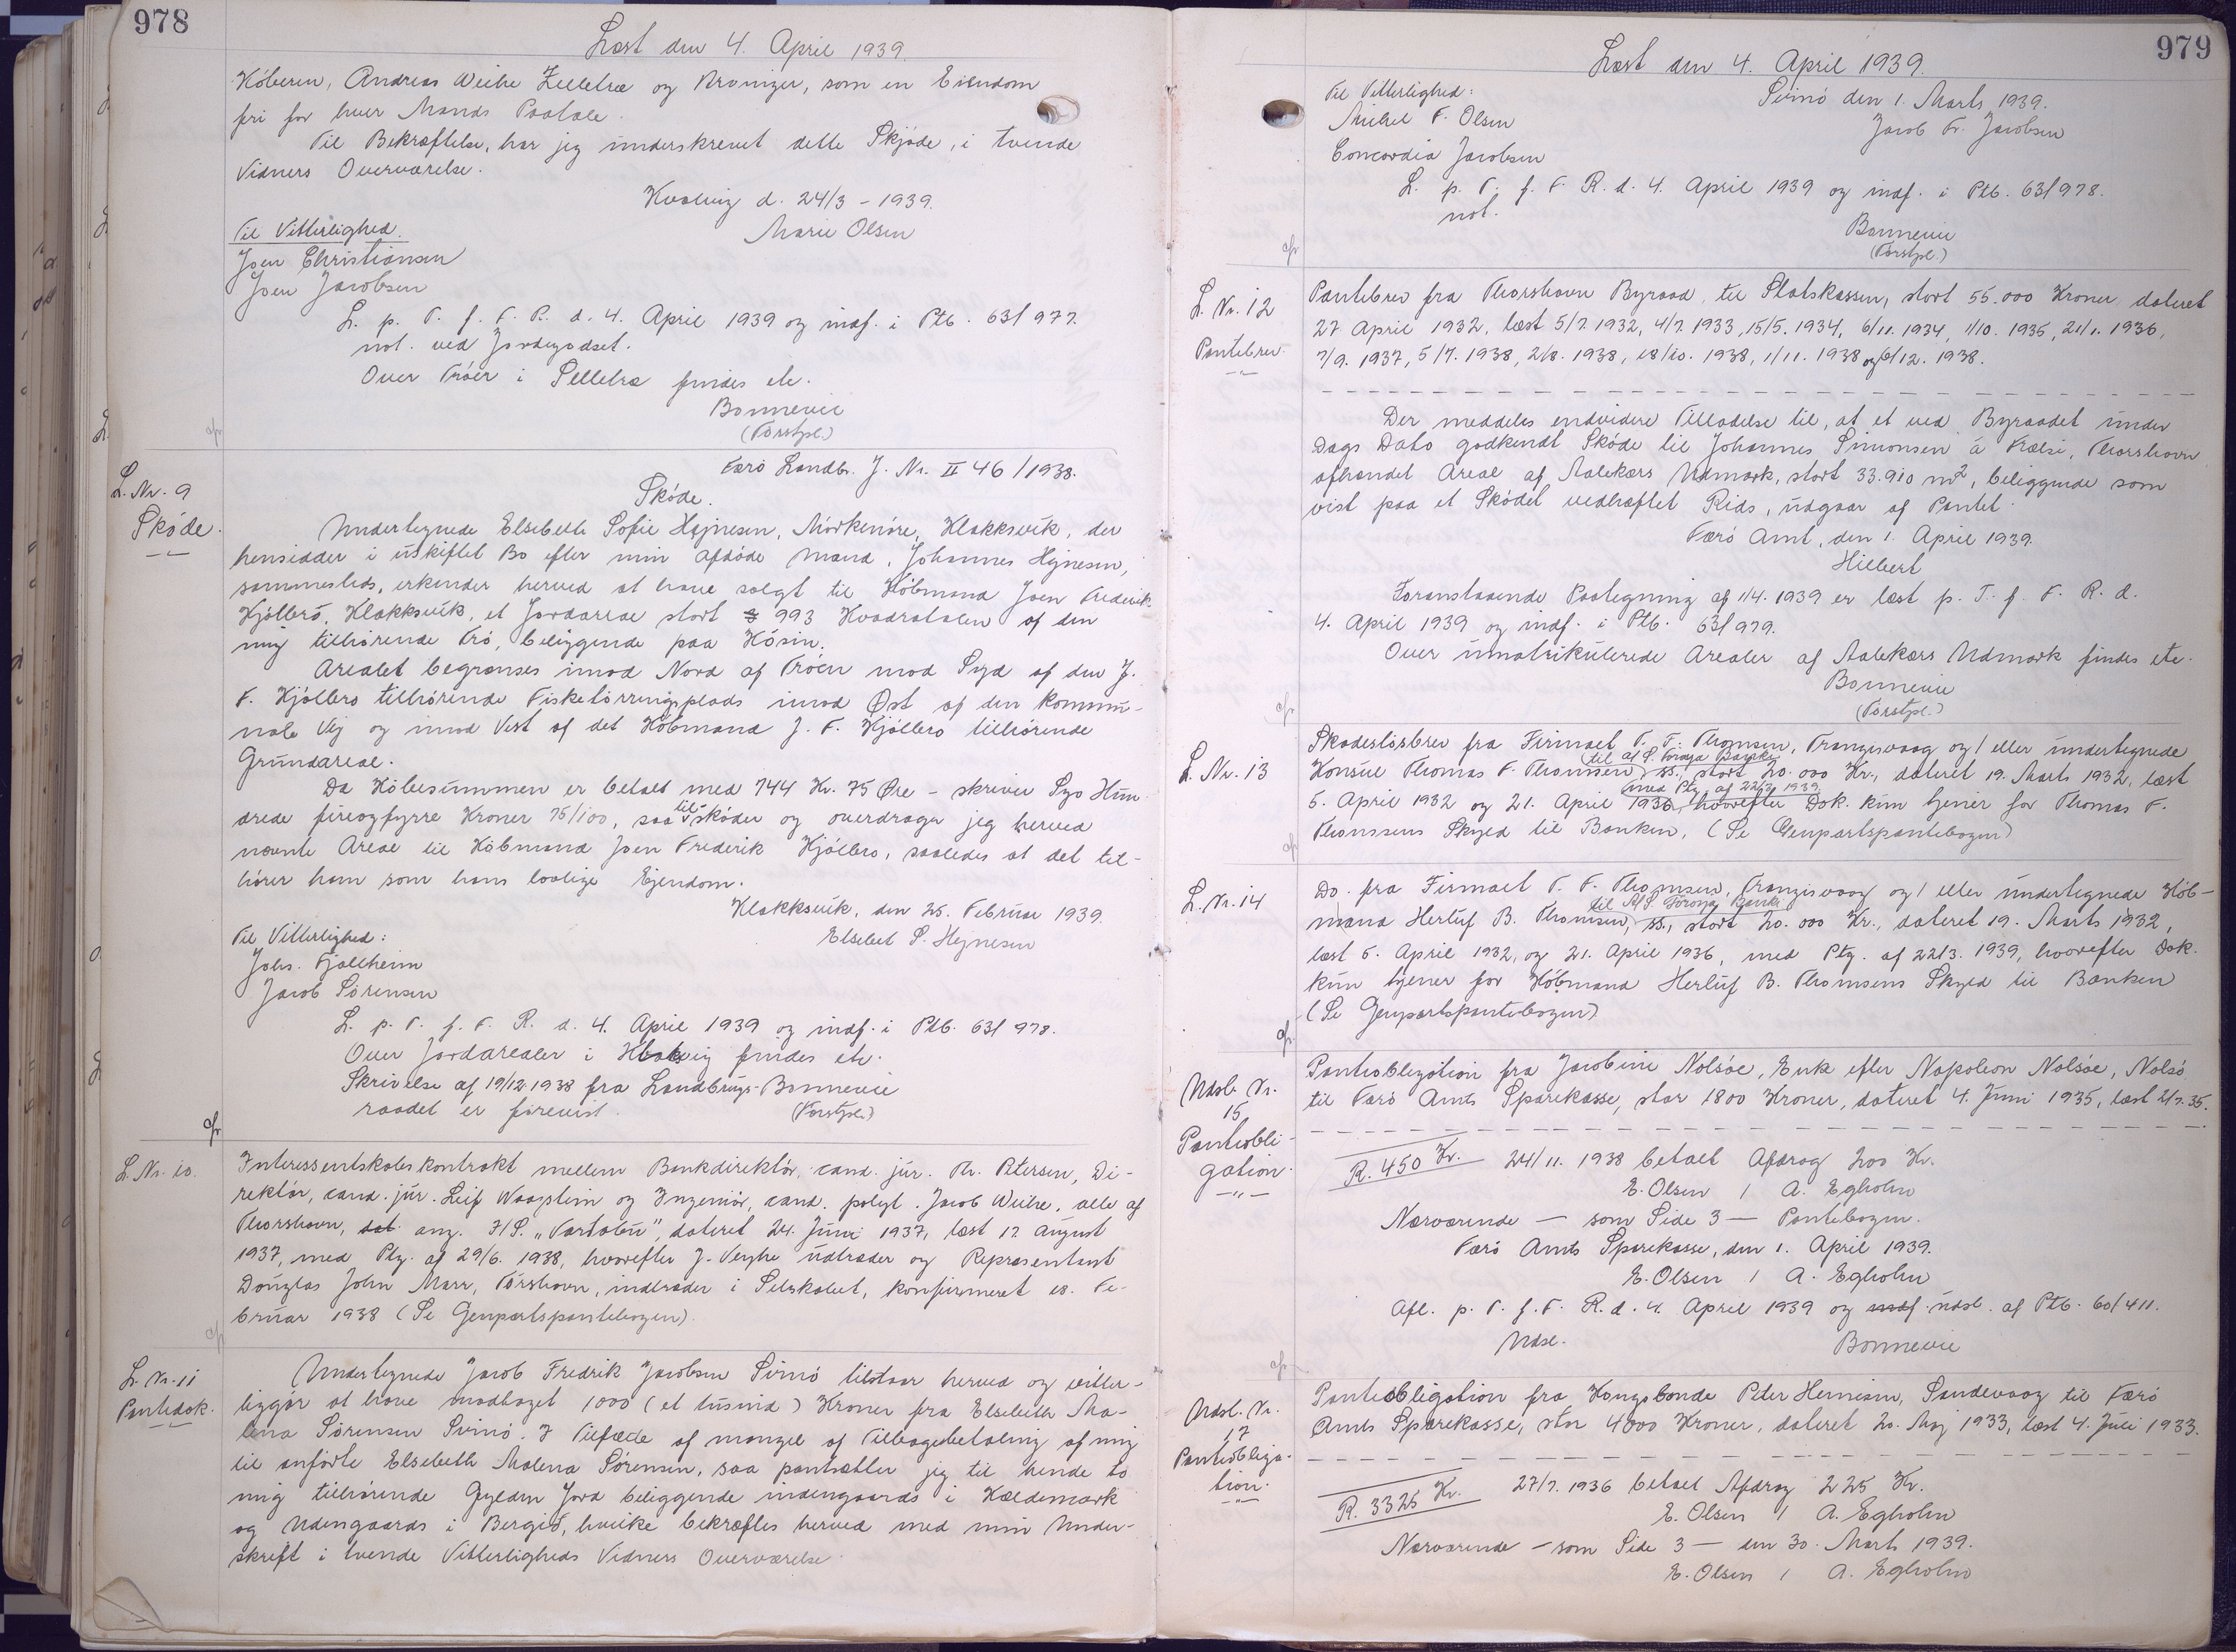 978
Læst den 4. April 1939.
Köberen, Andreas Weihe Selletræ og Arvinger, som en Eiendom
fri for hver Mands Paatale.
Til Bekræftelse, har jeg underskrevet dette Skjöde, i tvende
Vidners Overværelse.
Kvalvig d. 24/3 - 1939.
Til Vitterlighed. Marie Olsen
Joen Christiansen
Joen Jacobsen
L. p. T. f. F. R. d. 4. April 1939 og indf. i Ptb. 63/977.
not. ved Jordegodset.
Over Tröer i Selletræ findes etc.
Bonnevie
(Forstpl.)
Færö Landbr. J. Nr. II 46/1938.
L. Nr. 9
Skóde.
Skóde.
Undertegnede Elsebeth Sofie Højnesen, Mörkenöre, Klakksvík, der
hensidder i uskiftet Bo efter min afdöde Mand, Johannes Hejnesen,
sammesteds, erkender herved at have solgt til Köbmand Joen Frederik
Kjölbro, Klakksvik, et Jordareal stort 993 Kvadratalen af den
mig tilhörende Trö, beliggende paa Hósin.
Arealet begrænses imod Nord af Tröen mod Syd af den J.
F. Kjölbro tilhörende Fisketörringsplads imod Øst af den kommu-
nale Vej og imod Vest af det Köbmand J. F. Kjölbro tilhörende
Grundareal.
Da Köbesummen er betalt med 744 Kr. 75 Øre - skriver Syv Hun-
drede fireogfyrre Kroner 75/100, saa tilsköder og overdrager jeg herved
nævnte Areal til Köbmand Joen Frederik Kjölbro, saaledes at det til-
hörer ham som hans lovlige Ejendom.
Klakksvík, den 25. Februar 1939.
Til Vitterlighed: Elsebet S. Hejnesen
Johs. Fjallheim
Jacob Sörensen
L. p. T. f. F. R. d. 4. April 1939 og indf. i Ptb. 63/978.
Over Jordarealer i Klaksvig findes etc.
Skrivelse af 19/12 1938 fra Landbrugs- Bonnevie
raadet er forevist. (Forstpl.)
L. Nr. 10.
Interessentskabskontrakt mellem Bankdirektör, cand. jur. Th. Petersen, Di-
rektör, cand. jur. Leif Waagstein og Ingeniör, cand. polyt. Jacob Weihe, alle af
Thorshavn, dat. ang. I/S. „Vartabu", dateret 24. Juni 1937, læst 17 August
1937, med Ptg. af 29/6. 1938, hvorefter J. Weyhe udtræder og Repræsentant
Douglas John Marr, Tórshavn, indtræder i Selskabet, konfirmeret 18. Fe-
bruar 1938 (Se Genpartspantebogen).
L. Nr. 11
Pantedok.
Undertegnede Jacob Fredrik Jacobsen Svinó tilstaar herved og vitter-
liggör at have modtaget 1000 (et tusind) Kroner fra Elsebeth Ma-
lena Sörensen Svinó. I Tilfælde af mangel af Tilbagebetaling af mig
til anförte Elsebeth Malena Sörensen, saa pantsætter jeg til hende to
mig tilhörende Gylden Jord beliggende indengaards i Kældemark
og Udengaards i Bergid, hvilke bekræftes herved med min Under-
skrift i tvende Vitterligheds Vidners Overværelse.
979
Læst den 4. April 1939.
Til Vitterlighed: Svinó den 1. Marts 1939.
Michel F. Olsen Jacob Fr. Jacobsen
Concordia Jacobsen
L. p. T. f. F. R. d. 4. April 1939 og indf. i Ptb. 63/978.
not.
Bonnevie
(Forstpl.)
L. Nr. 12
Pantebrev.
Pantebrev fra Thorshavn Byraad, til Statskassen, stort 55.000 Kroner, dateret
27 April 1932, læst 5/7. 1932, 4/7. 1933, 15/5. 1934, 6/11. 1934, 1/10. 1935, 21/1. 1936,
7/9. 1937, 5/7. 1938, 2/8. 1938, 18/10. 1938, 1/11. 1938 og 6/12. 1938.
Der meddeles endvidere Tilladelse til, at et ved Byraadet under
Dags Dato godkendt Sköde til Johannes Simonsen á Trælsi, Thorshavn
afhændet Areal af Aalekærs Udmark, stort 33.910 m², beliggende som
vist paa et Sködet vedhæftet Rids, udgaar af Pantet.
Færö Amt, den 1. April 1939.
Hilbert
Foranstaaende Paategning af 1/4. 1939 er læst p. T. f. F. R. d.
4. April 1939 og indf. i Ptb. 63/979.
Over umatrikulerede Arealer af Aalekærs Udmark findes etc.
Bonnevie
(Forstpl.)
L. Nr. 13
Skadeslósbrev fra Firmaet T. F. Thomsen, Trangisvaag og/eller undertegnede
til A/S. Föroya Banki
Konsul Thomas F. Thomsen, ss., stort 20.000 Kr., dateret 19. Marts 1932, læst
med Ptg. af 22/3. 1939
5. April 1932 og 21. April 1936, hvorefter Dok. kun tjener for Thomas F.
Thomsens Skyld til Banken, (Se Genpartspantebogen)
L. Nr. 14
Do. fra Firmaet T. F. Thomsen, Trangisvaag og/eller undertegnede Köb-
til A/S. Föroya Banki
mand Herluf B. Thomsen, ss., stort 20.000 Kr., dateret 19. Marts 1932,
læst 5. April 1932, og 21. April 1936, med Ptg. af 22/3. 1939, hvorefter Dok.
kun tjener for Köbmand Herluf B. Thomsens Skyld til Banken
(Se Genpartspantebogen)
Udsl. Nr.
15
Panteobli-
gation.
Panteobligation fra Jacobine Nolsöe, Enke efter Napoleon Nolsöe, Nolsö
til Færö Amts Sparekasse, stor 1800 Kroner, dateret 4. Juni 1935, læst 2/7. 35.
R. 450 Kr. 24/11. 1938 betalt Afdrag 200 Kr.
E. Olsen / A. Egholm
Nærværende — som Side 3 — Pantebogen.
Færö Amts Sparekasse, den 1. April 1939.
E. Olsen / A. Egholm
Afl. p. T. f. F. R. d. 4. April 1939 og indf. udsl. af Ptb. 60/411.
Udsl. Bonnevie
Udsl. Nr.
17
Panteobliga-
tion.
Panteobligation fra Kongsbonde Peter Hennisen, Sandevaag til Færö
Amts Sparekasse, stor 4000 Kroner, dateret 20. Maj 1933, læst 4. Juli 1933.
R. 3325 Kr. 27/7. 1936 betalt Afdrag 225 Kr.
E. Olsen / A. Egholm
Nærværende — som Side 3 — den 30. Marts 1939.
E. Olsen / A. Egholm